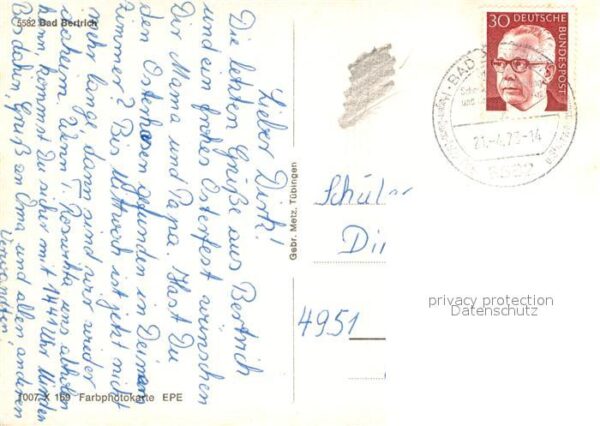 5582 Bad Bertrich
Lieber Dirk!
Die letzten Grüße aus Bertrich
und ein frohes Osterfest wünschen
Dir Mama und Papa. Hast Du
den Osterhasen gefunden in Deinem
Zimmer? Bis Mittwoch ist jetzt nicht
mehr lange, dann sind wir wieder
daheim. Wenn
uns abholen
kann, kommst Du sicher mit 14.41 Uhr Minden
Bis dahin, Gruß an Oma und allen anderen
Verwandten,
1007 X 159 Farbphotokarte EPE
Gebr. Metz, Tübingen
30 DEUTSCHE
BUNDESPOST
BAD
21.-4.73-14
5582
Schüler
Di
4951
privacy protection
Datenschutz